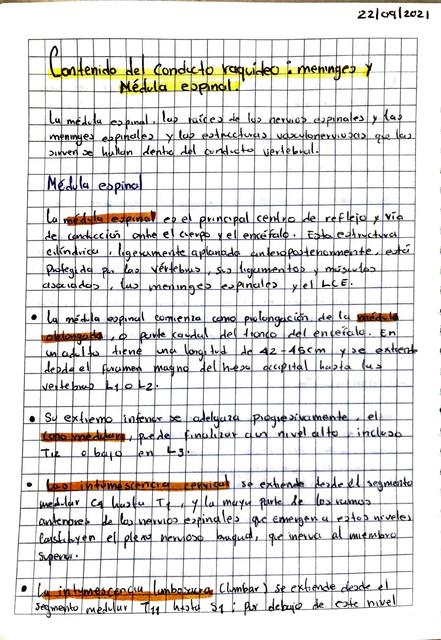 22/09/2021
Contenido del Conducto raquídeo: meninges y
Médula espinal.
La médula espinal, las raíces de los nervios espinales y las
meninges espinales y las estructuras vasculonerviosas que las
sirven se hallan dentro del conducto vertebral.
Médula espinal
La médula espinal es el principal centro de reflejo y vía
de conducción ente el cuerpo y el encéfalo. Esta estructura
cilíndrica, ligeramente aplanada anteroposteriormente, está
protegida por las vértebras, sus ligamentos y músculos
asociados, las meninges espinales y el LCE.
• La médula espinal comienza como prolongación de la médula
oblongada, o parte caudal del tronco del encéfalo. En
un adulto tiene una longitud de 42-45cm y se extiende
desde el foramen magno del hueso occipital hasta las
vertebras L1 o L2.
• Su extremo inferior se adelgaza progresivamente, el
cono medular, puede finalizar a un nivel alto, incluso
T12 o bajo en L3.
• Los intumescencia cervical se extiende desde el segmento
medular C4 hasta T1, y la mayor parte de los ramos
anteriores de los nervios espinales que emergen a estos niveles
constituyen el plexo nervioso braquial, que inerva al miembro
superior.
• La intumescencia lumbosacra (lumbar) se extiende desde el
segmento médular T11 hasta S1; por debajo de este nivel